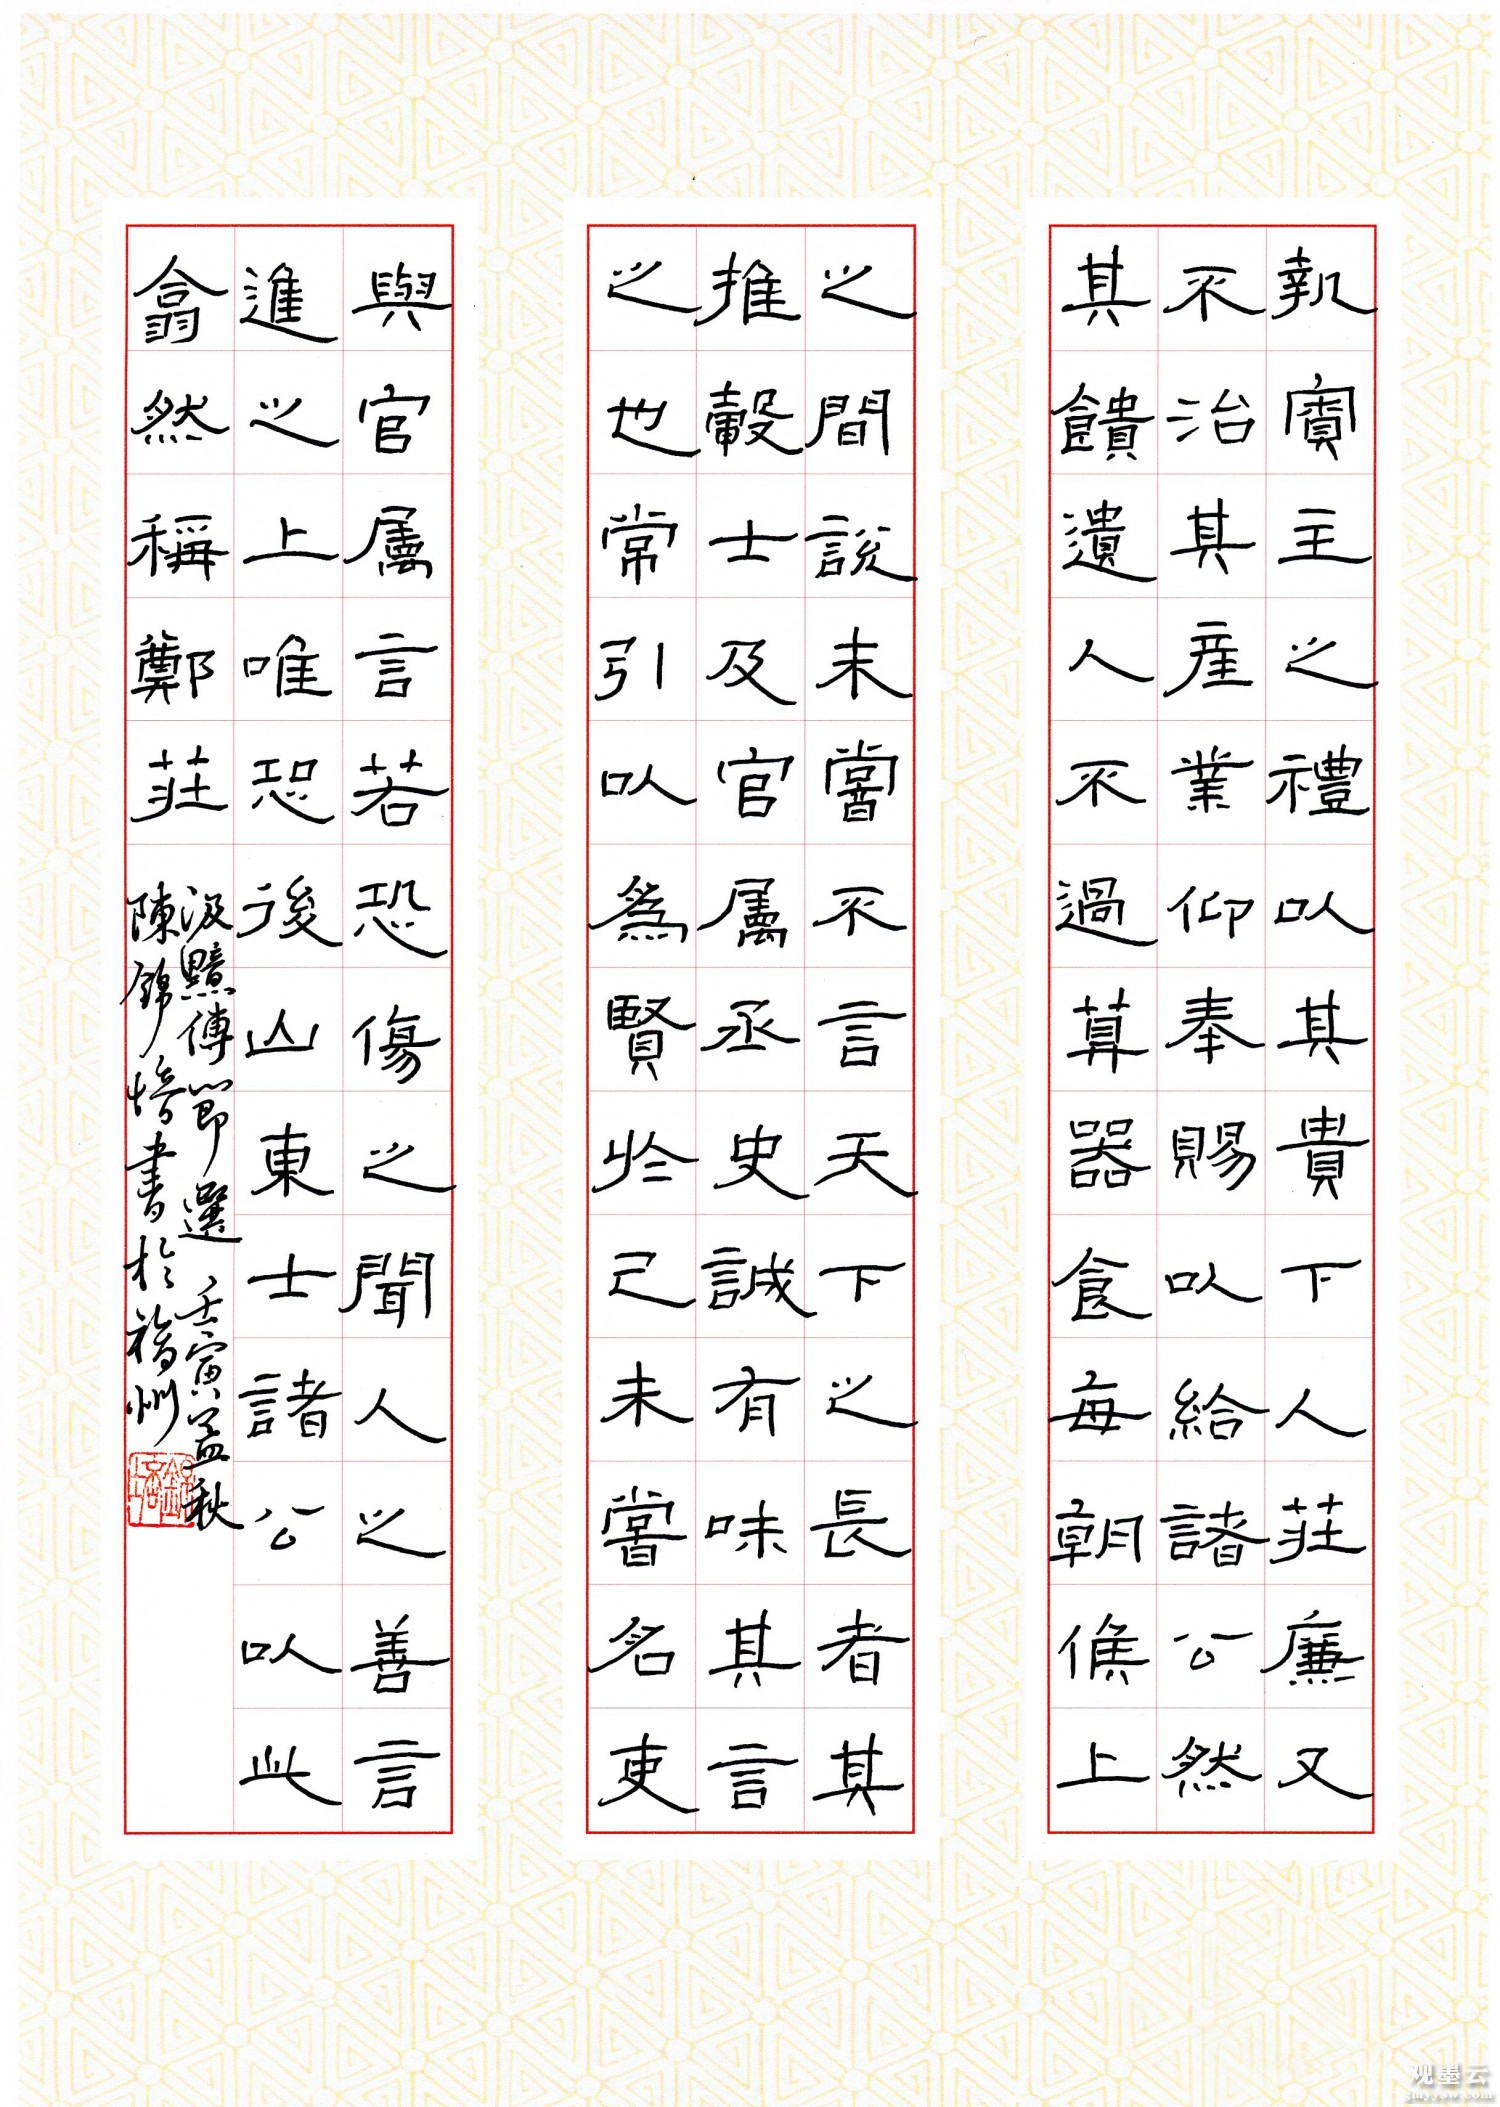 執賓主之禮以其貴下人莊廉又
不治其產業仰奉賜以給諸公然
其饋遺人不過算器食每朝候上
之間說未嘗不言天下之長者其
推轂士及官屬丞史誠有味其言
之也常引以為賢於己未嘗名吏
與官屬言若恐傷之聞人之善言
進之上唯恐後山東士諸公以此
翕然稱鄭莊
汲黯傳節選 壬寅孟秋
陳錦培書於福州
观墨云
gmyyow.com